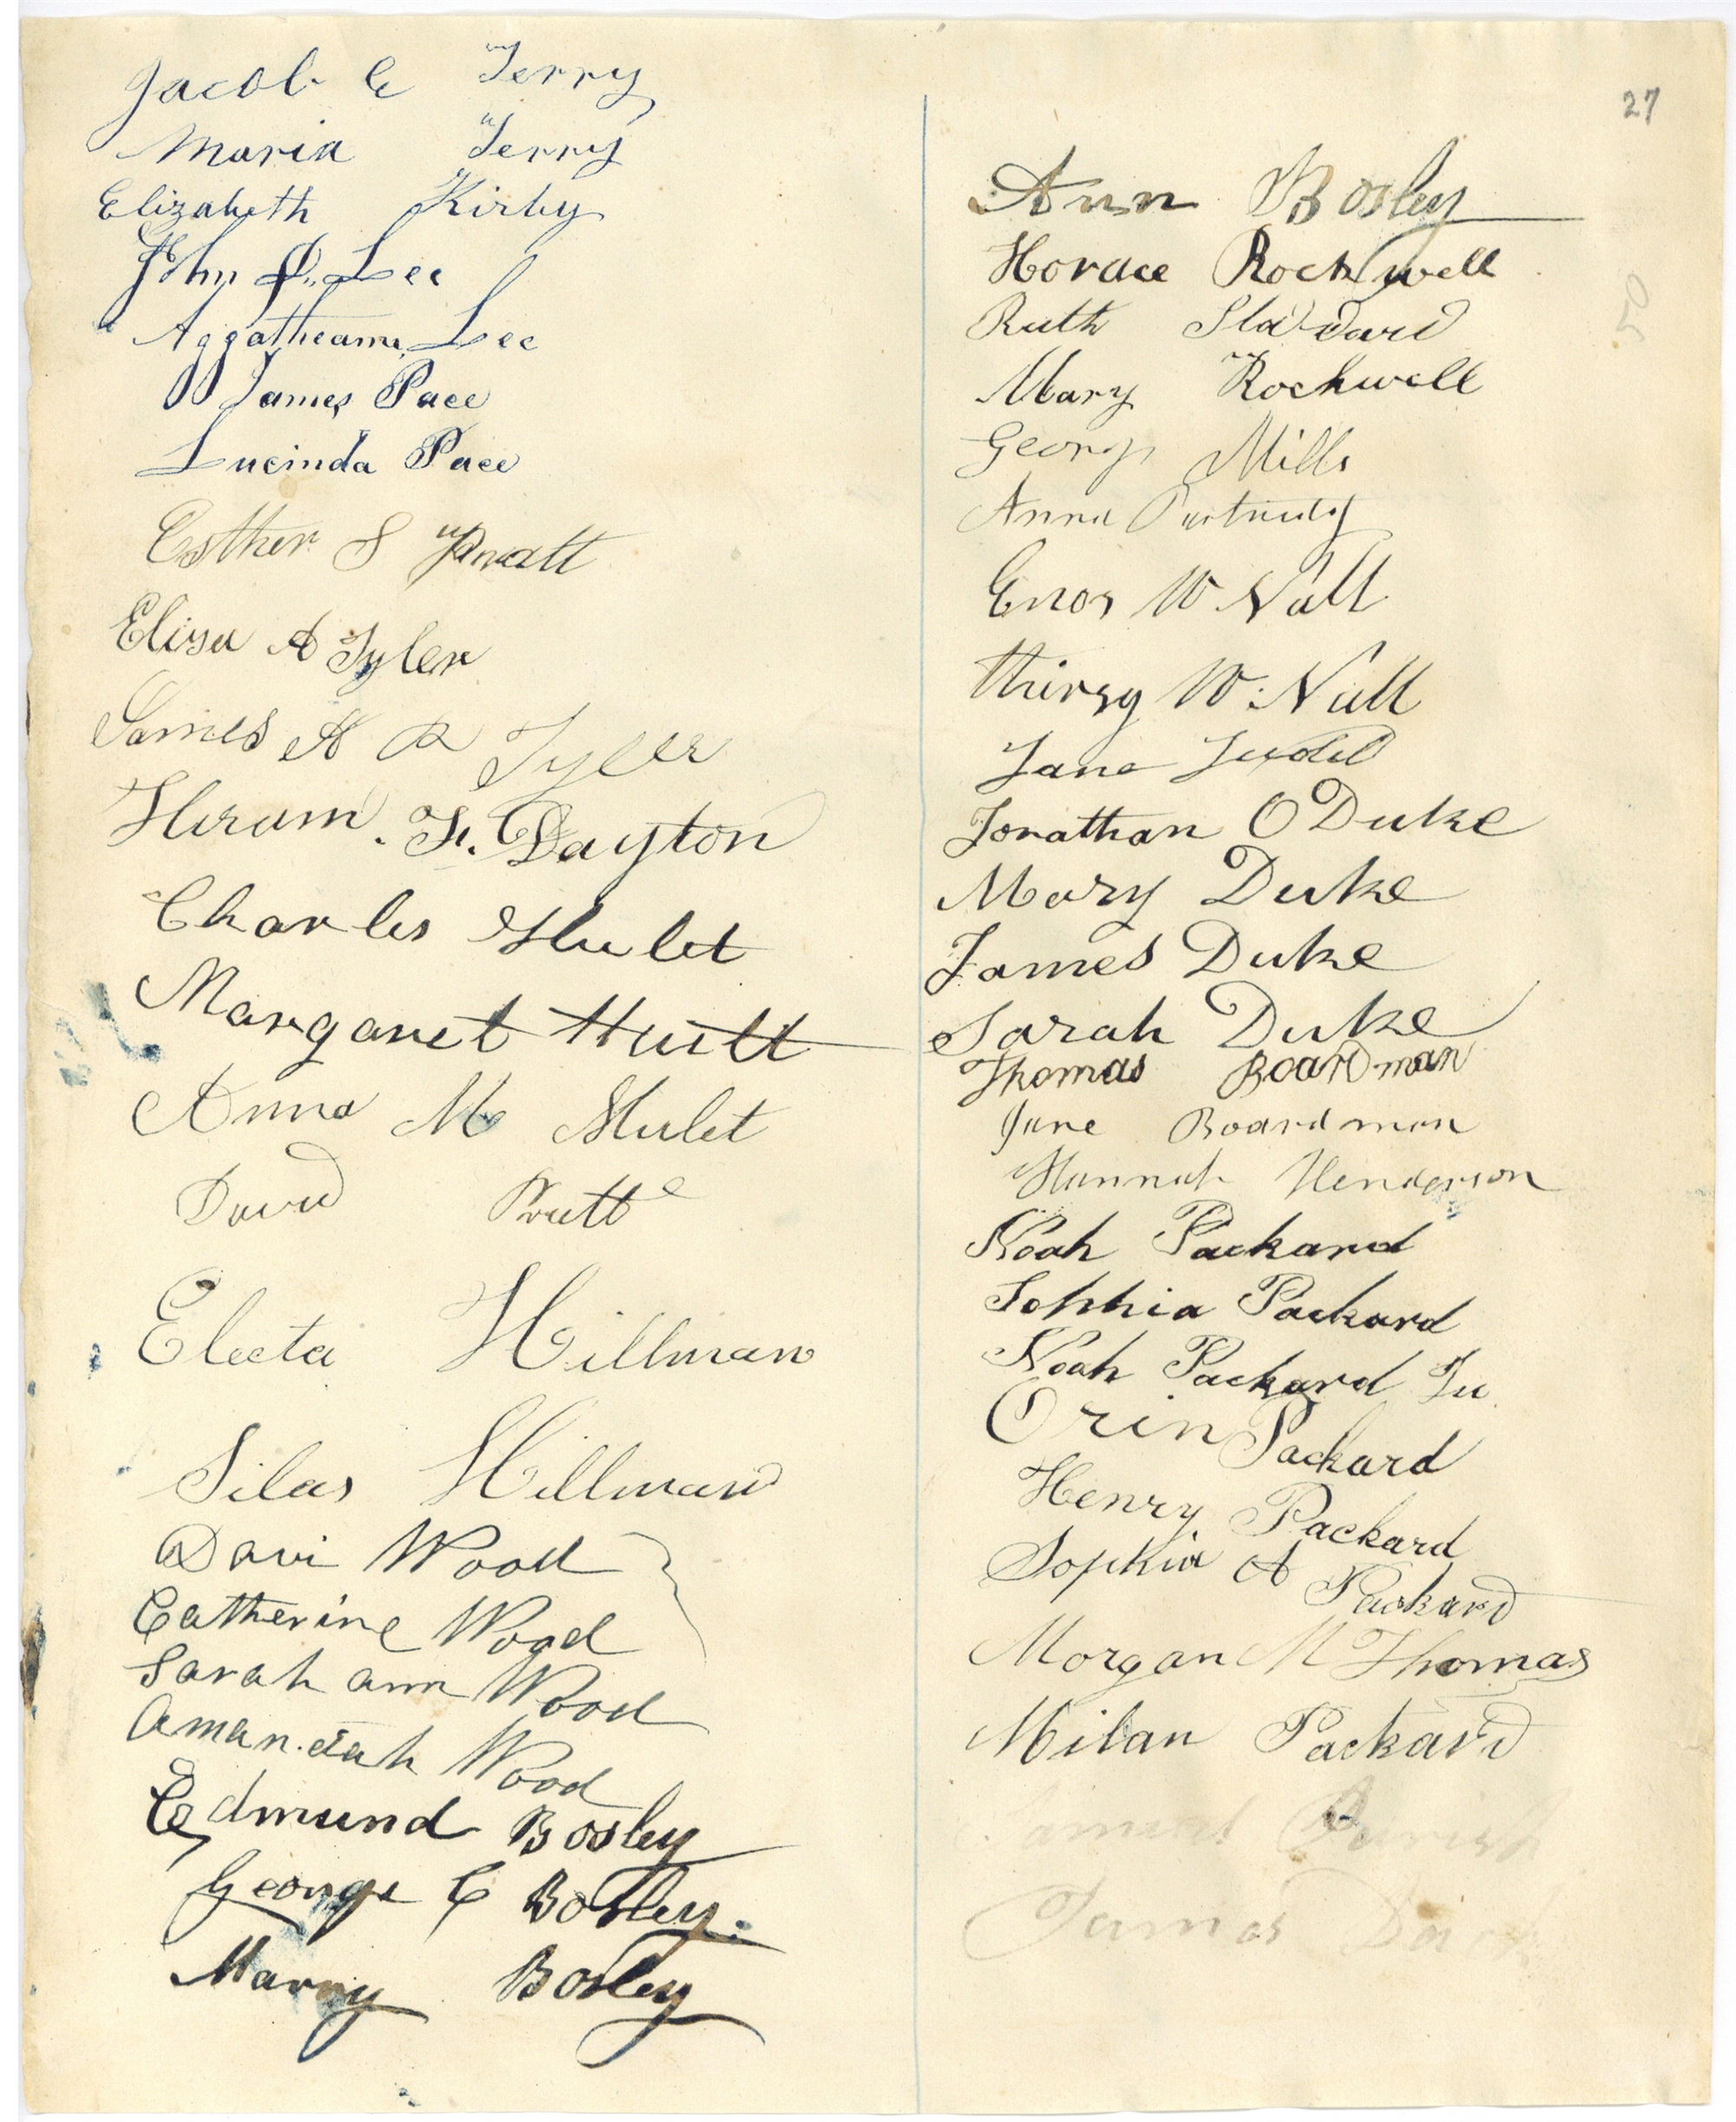 Jacob E Terry
Maria Terry
Elizabeth Kirby
John D. Lee
Aggatheann Lee
James Pace
Lucinda Pace
Esther S Pratt
Elisa A Tyler
James A R Tyler
Hiram. F. Dayton
Charles Hulet
Margaret Hulett
Anna M Hulet
David Pratt
Electa Hillman
Silas Hillman
Davi Wood
Catherine Wood
Sarah ann Wood
Amandah Wood
Edmund Bosley
George C Bosley.
Marry Bosley
27
Ann Bosley
Horace Rockwell
50
Ruth
Mary Rockwell
George Mills
Anna
Enos W Nall
thirsy W. Nall
Jane
Jonathan O Duke
Mary Duke
James Duke
Sarah Duke
Thomas Boardman
Jane Boardman
Hannah Henderson
Noah Packard
Sophia Packard
Noah Packard Ju
Orin Packard
Henry Packard
Sophia A Packard
Morgan M Thomas
Milan Packard
James